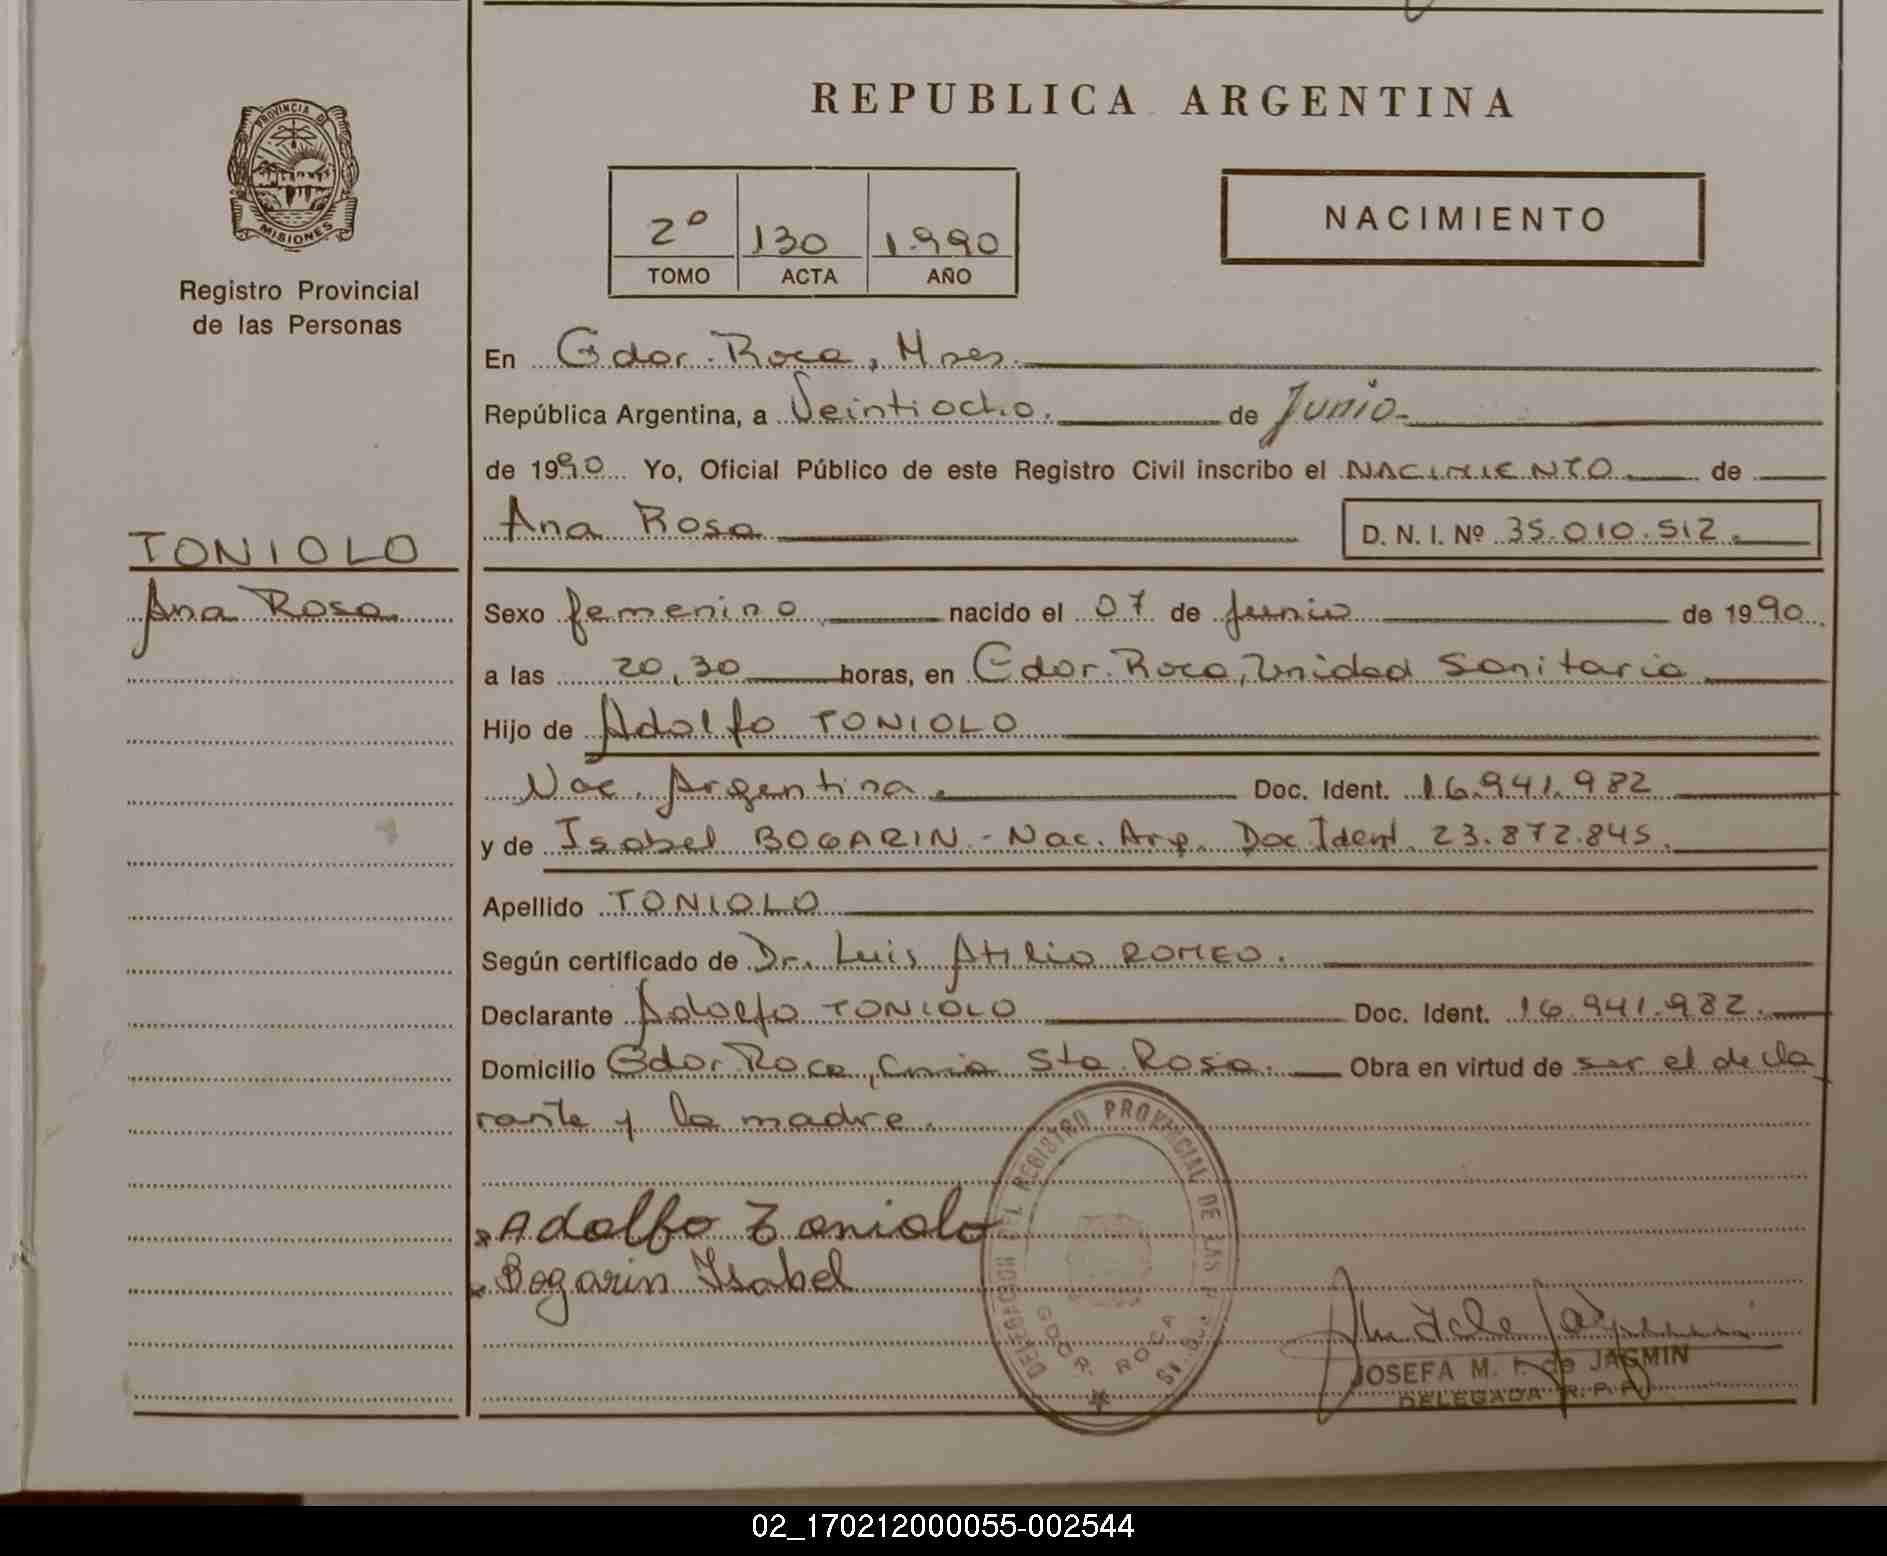 REPUBLICA ARGENTINA
PROVINCIA DE
MISIONES
Registro Provincial
de las Personas
2º 130 1.990
TOMO ACTA AÑO
NACIMIENTO
En Gdor. Roca, Mnes.
República Argentina, a Veintiocho. de Junio
de 1990 Yo, Oficial Público de este Registro Civil inscribo el NACIMIENTO de
Ana Rosa D. N. I. Nº 35.010.512.
TONIOLO
Ana Rosa
Sexo femenino nacido el 07 de Junio de 1990
a las 20,30 horas, en Gdor. Roca, Unidad Sanitaria
Hijo de Adolfo TONIOLO
Nac. Argentina. Doc. Ident. 16.941.982
y de Isabel BOGARIN - Nac. Arg. Doc Ident. 23.872.845.
Apellido TONIOLO
Según certificado de Dr. Luis Atilio ROMEO.
Declarante Adolfo TONIOLO Doc. Ident. 16.941.982.
Domicilio Gdor. Roca, Cnia Sta Rosa. Obra en virtud de ser el decla
rante y la madre.
Adolfo Toniolo
Bogarin Isabel
DEL REGISTRO PROVINCIAL DE LAS
GDOR. ROCA
JOSEFA M. de JASMIN
DELEGADA R.P.P.
02_170212000055-002544